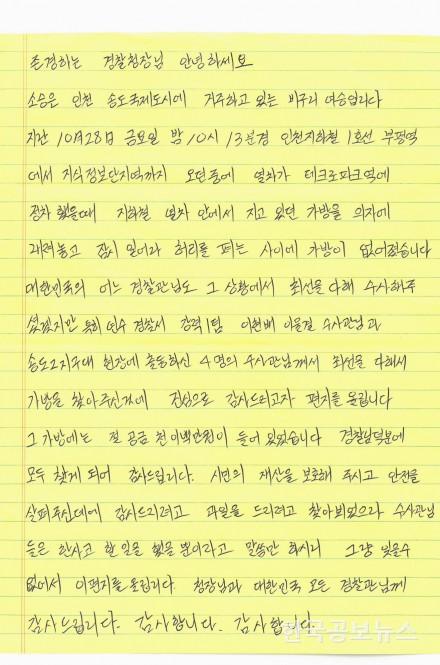 존경하는 경찰청장님 안녕하세요
소승은 인천 송도국제도시에 거주하고 있는 비구니 여승입니다
지난 10月28日 금요일 밤 10시 13분경 인천지하철 1호선 부평역
에서 지식정보단지역까지 오던중에 열차가 테크로파크역에
정차 했을때 지하철 열차 안에서 지고 있던 가방을 의자에
내려놓고 잠시 일어나 허리를 펴는 사이에 가방이 없어졌습니다
대한민국의 어느 경찰관님도 그 상황에서 최선을 다해 수사해주
셨겠지만 특히 연수 경찰서 강력1팀 이현배 이율결 수사관님과
송도2지구대 현장에 출동하신 4명의 수사관님께서 최선을 다해서
가방을 찾아주신것에 진심으로 감사드리고자 편지를 올립니다
그 가방에는 절 공금 천이백만원이 들어 있었습니다 경찰님덕분에
모두 찾게 되어 감사드립니다. 시민의 재산을 보호해 주시고 안전을
살펴주신데에 감사드리려고 과일을 드리려고 찾아뵈었으나 수사관님
들은 한사코 할 일을 했을 뿐이라고 말씀만 하시니 그냥 있을수
없어서 이편지를 올립니다. 청장님과 대한민국 모든 경찰관님께
감사드립니다. 감사합니다. 감사합니다
한국공보뉴스